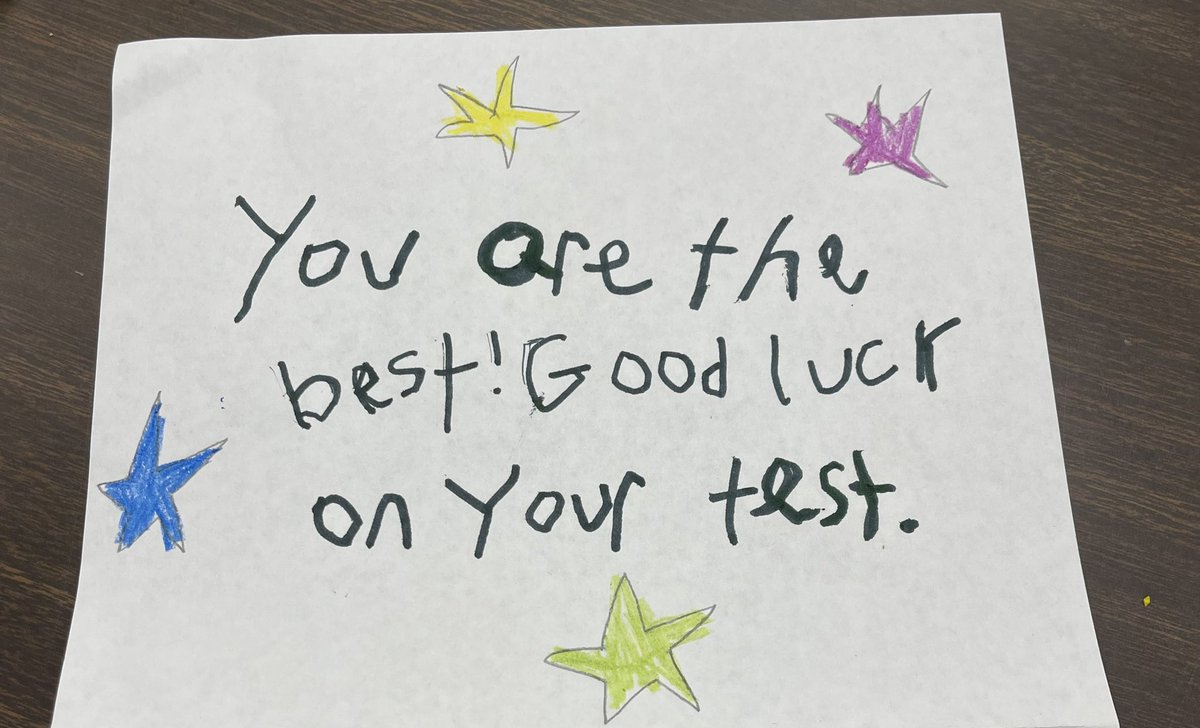 You are the
best! Good luck
on Your test.